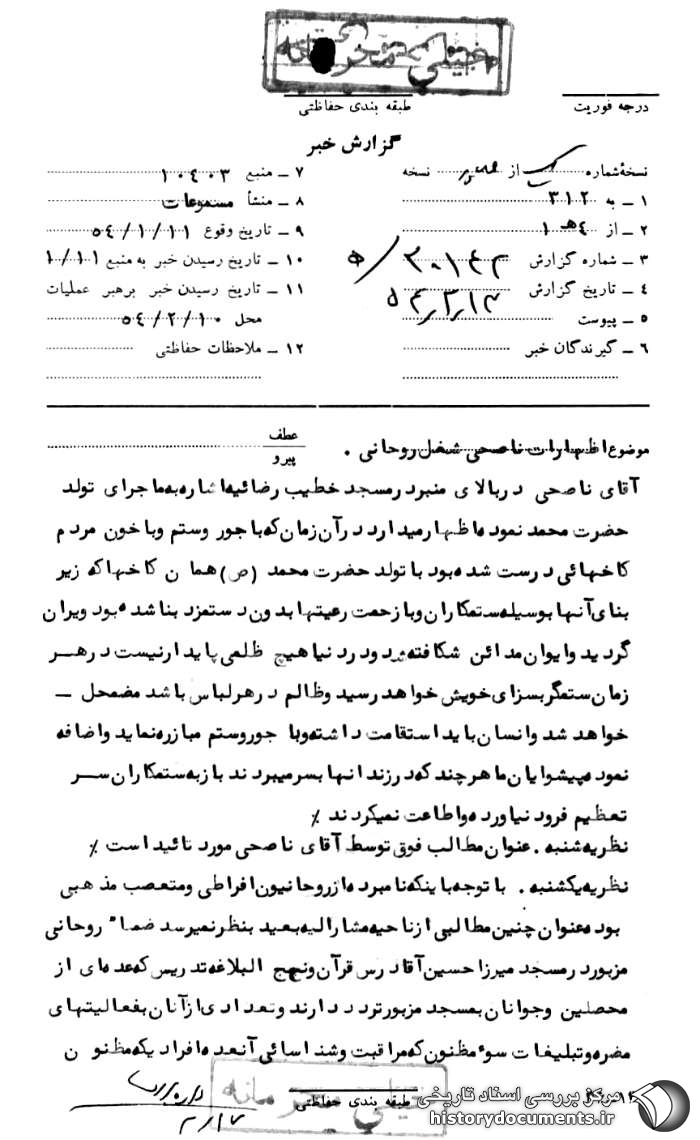 خیلی محرمانه
درجه فوریت
طبقه بندی حفاظتی
گزارش خبر
نسخهٔ شماره از نسخه
۱ ــ به ۳۱۲
۲ ــ از ۴ هـ ۱
۳ ــ شماره گزارش ۳۰۱۴۲ / ه
۴ ــ تاریخ گزارش ۵۴٫۳٫۱۳
۵ ــ پیوست
۶ ــ گیرندگان خبر
۷ ــ منبع ۱۰۴۰۳
۸ ــ منشأ مسموعات
۹ ــ تاریخ وقوع ۵۴/۱/۱۱
۱۰ ــ تاریخ رسیدن خبر به منبع ۱/۱۱
۱۱ ــ تاریخ رسیدن خبر برهبر عملیات
محل ۵۴/۲/۱۰
۱۲ ــ ملاحظات حفاظتی
موضوع اظهارات ناصحی شغل روحانی .
عطف
پیرو
آقای ناصحی در بالای منبر در مسجد خطیب رضائیه اشاره به ماجرای تولد
حضرت محمد نموده اظهار میدارد در آن زمان که با جور وستم وبا خون مردم
کاخهائی درست شده بود با تولد حضرت محمد (ص) همان کاخها که زیر
بنای آنها بوسیله ستمکاران وبا زحمت رعیتها بدون دستمزد بنا شده بود ویران
گردید وایوان مدائن شکافته شد ودر دنیا هیچ ظلمی پایدار نیست در هر
زمان ستمگر بسزای خویش خواهد رسید وظالم در هر لباس باشد مضمحل ــ
خواهد شد وانسان باید استقامت داشته وبا جور وستم مبارزه نماید واضافه
نموده پیشوایان ما هر چند که در زندانها بسر میبردند باز به ستمکاران سر
تعظیم فرود نیاورده واطاعت نمیکردند ٪
نظریه شنبه . عنوان مطالب فوق توسط آقای ناصحی مورد تائید است ٪
نظریه یکشنبه . با توجه باینکه نامبرده از روحانیون افراطی ومتعصب مذهبی
بوده عنوان چنین مطالبی از ناحیه مشارالیه بعید بنظر نمیرسد ضما" روحانی
مزبور در مسجد میرزا حسین آقا درس قرآن ونهج البلاغه تدریس که عده ای از
محصلین وجوانان بمسجد مزبور تردد دارند وتعدادی از آنان بفعالیتهای
مضره وتبلیغات سوء مظنون که مراقبت وشناسائی آنعده افرادیکه مظنون
طبقه بندی حفاظتی
خیلی محرمانه
مرکز بررسی اسناد تاریخی
historydocuments.ir